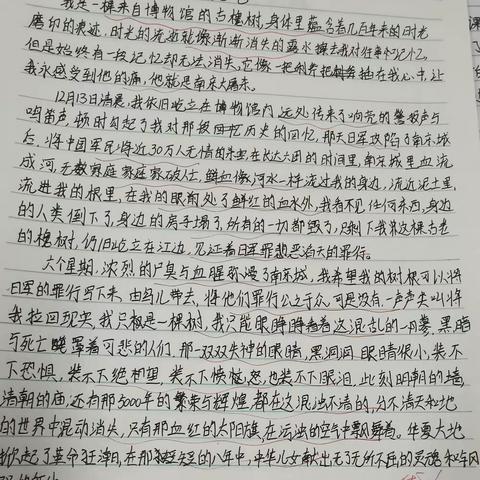 我是一棵来自博物馆的古槐树,身体里蕴含着几百年来的时光
磨印的表迹,时光的流逝就像渐渐消失的露水抹去我对往事的记忆,
但是始终有一段记忆却无法消失,它像一把利斧把刺斧插在我心中,让
我永感受到他的痛,他就是南京大屠杀。
12月13日清晨,我依旧屹立在博物馆内,远处传来了响亮的警报声与
鸣笛声,顿时勾起了我对那段回忆历史的回忆,那天日军攻陷了南京城
后,将中国军民将近30万人无情的杀害,在长达六周的时间里,南京城里血流
成河,无数家庭家庭家破人亡,鲜血像河水一样流过我的身边,流近泥土里,
流进我的根里,在我的眼前处了鲜红的血水外,我看不见任何东西,身边
的人类倒下了,身边的房子塌了,所有的一切都毁了,只剩下我这棵古老
的槐树,仍旧屹立在江边,见证着日军罪恶滔天的罪行。
六个星期,浓烈的尸臭与血腥弥漫了南京城,我希望我的树根可以将
日军的罪行写下来,由鸟儿带去,将他们罪行公之于众,可是没有,一声声尖叫将
我拉回现实,我只极是一棵树,我只能眼睁睁看着这混乱的一幕,黑暗
与死亡笼罩着可悲的人们,那一双双失神的眼睛,黑洞洞,眼睛很小,装不
下恐惧,装不下绝望,装不下愤怒,也装不下眼泪,此刻明朝的墙
清朝的庙,还有那5000年的繁荣与辉煌,都在这混浊不清的,分不清天和地
的世界中混动消失,只有那血红的太阳旗,在浑浊的空气中飘舞着。华夏大地
掀起了革命狂潮,在那短短的八年中,中华儿女献出无了无所不屈的灵魂和